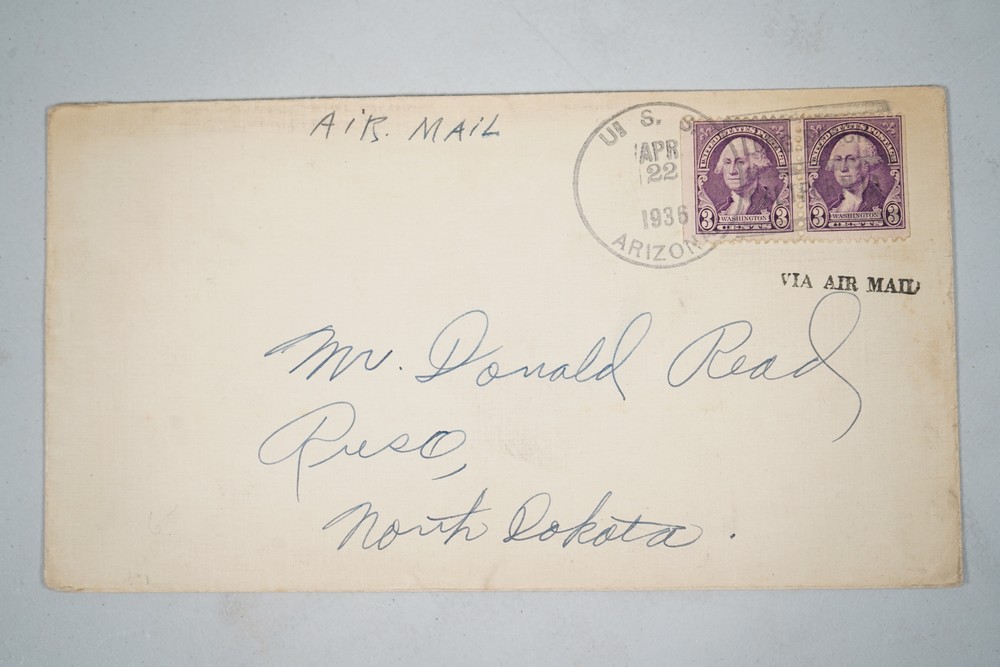 AIR. MAIL
U. S. S.
APR
22
1936
ARIZONA
UNITED STATES POSTAGE
3 WASHINGTON 3
CENTS
UNITED STATES POSTAGE
3 WASHINGTON 3
CENTS
VIA AIR MAIL
Mr. Donald Read
Ruso,
North Dakota.